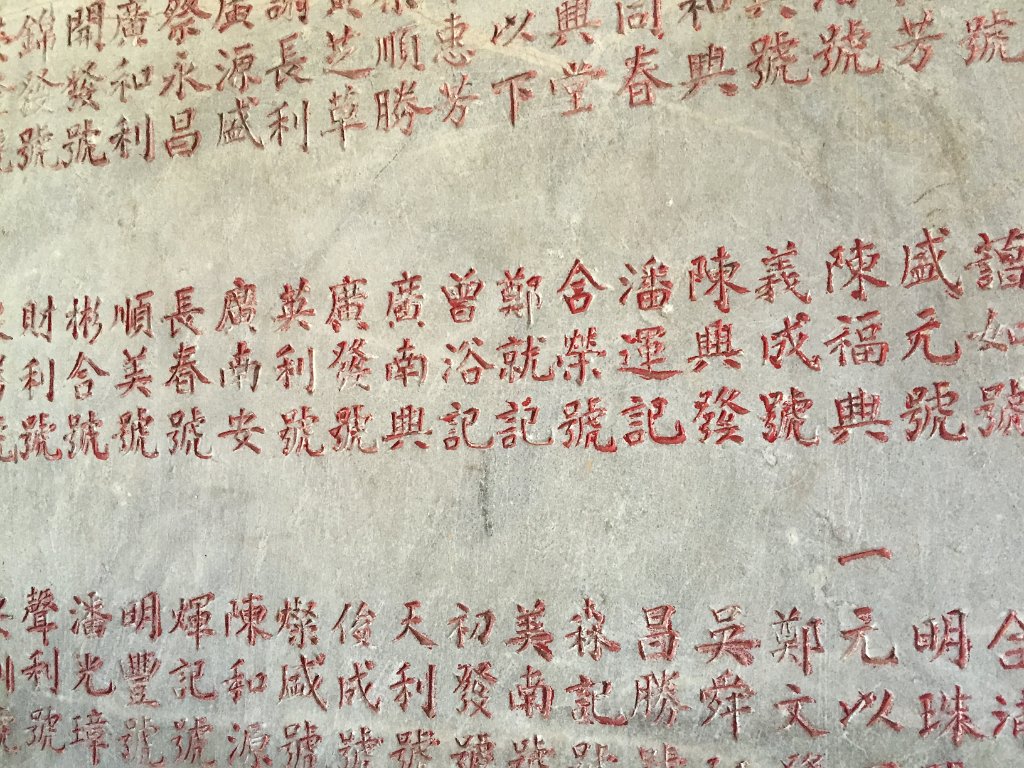 號
芳
號
號
和興
同春
興堂
以下
惠芳
順勝
黃芝草
謝長利
廣源盛
祭永昌
廣和利
開發號
錦發號
號
藹如號
盛元號
陳福興
義成號
陳興發
潘運記
含榮號
鄭就記
曾浴記
廣南興
廣發號
英利號
廣南安
長春號
順美號
彬合號
財利號
號
含
明珠
一元以
鄭文
吳舜
昌勝
森記號
美南號
初發號
天利號
俊成號
燦盛號
陳和源
煇記號
明豐號
潘光璋
聲利號
利號